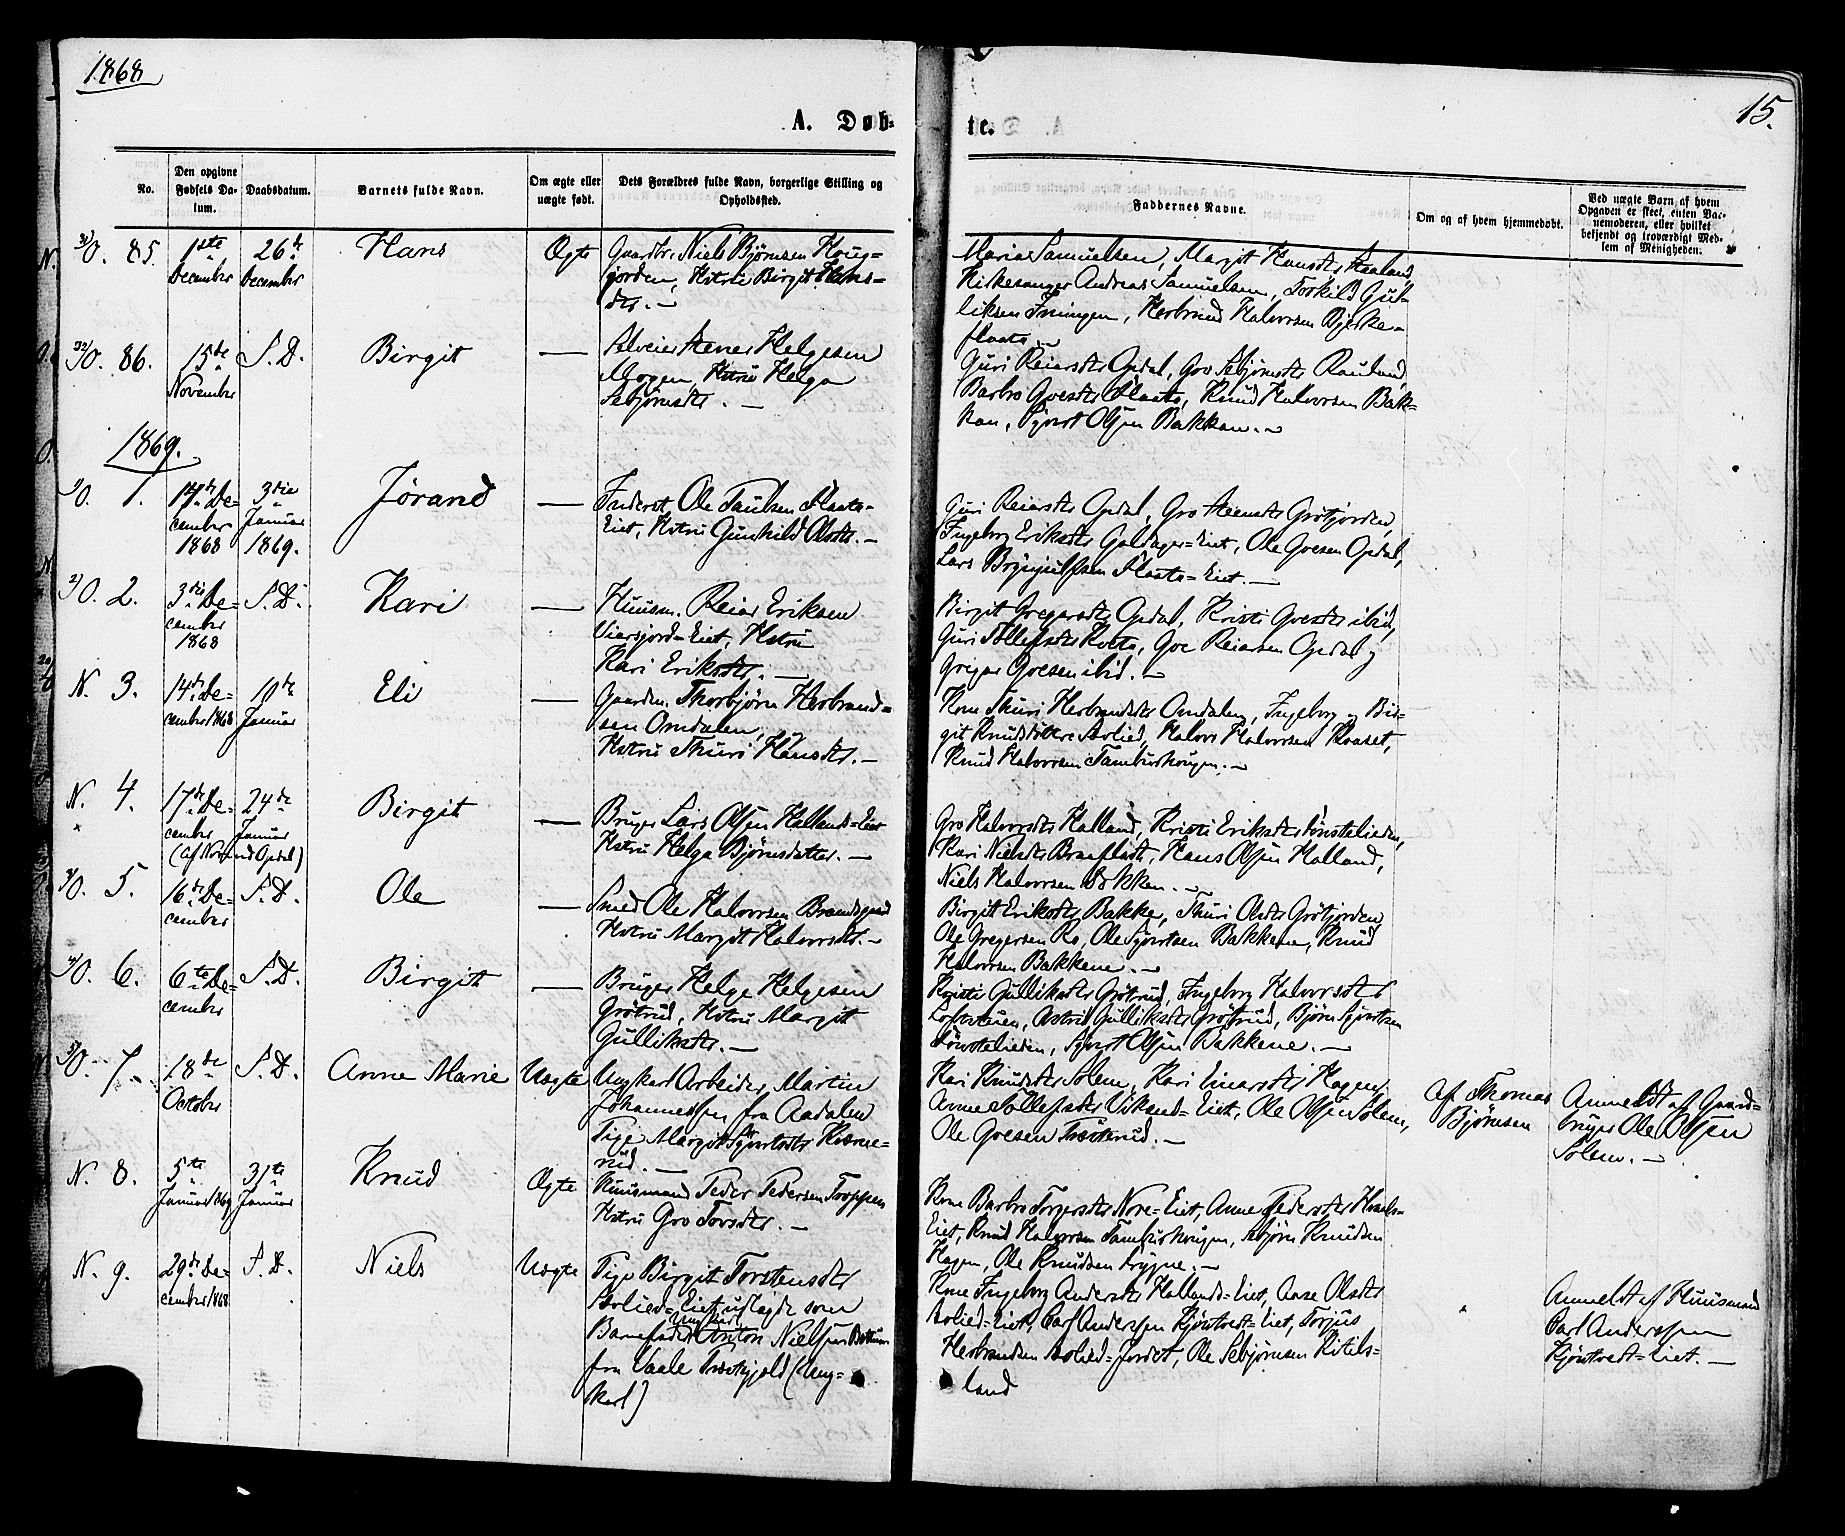 1868
15.
A. Døb-
te.
No.
Den opgivne Fødsels Da-
tum.
Daabsdatum.
Barnets fulde Navn.
Om ægte eller
uægte født.
Dets Forældres fulde Navn, borgerlige Stilling og
Opholdssted.
Faddernes Navne.
Om og af hvem hjemmedøbt.
Ved uægte Barn, af hvem
Opgaven er skeet, enten Bar-
nemoderen, eller hvilket
bekjendt og troværdigt Med-
lem af Menigheden.
O. 85. 1ste December 26de December Hans Ægte
Gaardbr. Niels Bjørnsen Houg-
jorden, Hstru Birgit Hans-
dtr. —
Maria Samuelsen, Margit Hansdtr
Kirkesanger Andreas Samuelsen, Torkild Gul-
liksen Fruingen, Herbrand Halvorsen Bjerke-
flaata. —
O. 86. 15de November S. D. Birgit —
Selveier Stener Helgesen
Mogen, Hstru Helga
Sebjørnsdtr. —
Guri Reiarsdtr Opdal, Gro Sebjørnsdtr Rauland,
Barbro Goesdtr Flaata, Knud Halvorsen Bak-
kan, Syvert Olsen Bakkan. —
1869.
O. 1. 17de December 1868 3die Januar 1869. Jørand —
Inderst Ole Paulsen Flaata-
Eiet, Hstru Gunhild Olsdtr. —
Guri Reiarsdtr Opdal, Gro Steensdtr Grøtjorden,
Ingeborg Eriksdtr Goldager-Eiet, Ole Goesen Opdal,
Lars Brynjulfsen Flaata-Eiet. —
O. 2. 3die December 1868 S. D. Kari —
Huusm. Reiar Eriksen
Viersjord-Eiet, Hstru
Kari Eriksdtr. —
Birgit Gregarsdtr Opdal, Kristi Goesdtr ibid,
Guri Tollefsdtr Kvata, Goe Reiarsen Opdal og
Gregar Goesen ibid. —
N. 3. 14de December 1868 10de Januar Eli —
Gaardm. Thorbjørn Herbrand-
sen Omdalen,
Hstru Thuri Hansdtr. —
Kone Thuri Herbrandsdtr Omdalen, Ingeborg og Bir-
git Knudsdøttre Aslied, Halvor Halvorsen Kraaset,
Knud Halvorsen Tamburhougen. —
N. 4. 17de December 24de Januar Birgit —
(af Nore and Opdal)
Bruger Lars Olsen Hallands-Eiet
Hstru Helga Bjørnsdatter. —
Gro Halvorsdtr Halland, Kristi Eriksdtr Tønstelieden,
Kari Nielsdtr Braafladt, Hans Olsen Halland,
Niels Halvorsen Bakken. —
O. 5. 16de December S. D. Ole —
Smed Ole Halvorsen Brandsgaard
Hstru Margit Halvorsdtr. —
Birgit Eriksdtr Bakke, Thuri Olsdtr Grøtjorden,
Ole Gregersen Ro, Ole Syvertsen Bakkene, Knud
Halvorsen Bakkene. —
O. 6. 6te December S. D. Birgit —
Bruger Helge Helgesen
Grøtrud, Hstru Margit
Gulliksdtr. —
Kristi Gulliksdtr Grøtrud, Ingeborg Halvorsdtr
Loftstuen, Astrid Gulliksdtr Grøtrud, Bjørn Syvertsen
Tønstelieden, Syvert Olsen Bakkene. —
O. 7. 18de October S. D. Anne Marie Uægte
Ungkarl Arbeider Martin
Johannessen fra Aadalen
Pige Margit Syvertsdtr Kværne-
rud. —
Kari Knudsdtr Solem, Kari Einarsdtr Hagen,
Anne Tollefsdtr Viksund-Eiet, Ole Olsen Solem,
Ole Goesen Traaterud. —
Af Thomas
Bjørnsen
Anmeldt af Gaard-
bruger Ole Olsen
Solem. —
N. 8. 5te Januar 1869 31te Januar Knud Ægte
Huusmand Peder Pedersen Troppen
Hstru Gro Torsdtr. —
Kone Barbro Torgersdtr Nore-Eiet, Anne Pedersdtr
Eiet, Knud Halvorsen Tamburhougen, Asbjørn Knudsen
Hagen, Ole Knudsen Trygne. —
N. 9. 29de December 1868 S. D. Niels Uægte
Pige Birgit Torstensdtr
Aslied-Eiet, udlagde som
Barnefader Ungkarl Anton Nielsen
fra Vaale Præstegjeld (Ung-
karl)
Kone Ingeborg Andersdtr Hallands-Eiet, Anne Olsdtr
Aslied-Eiet, Carl Anderssen Kjøntvedt-Eiet, Torjus
Herbrandsen Aslied-Jordet, Ole Sebjørnsen Kitils-
land
Anmeldt af Huusmand
Carl Anderssen
Kjøntvedt-Eiet. —